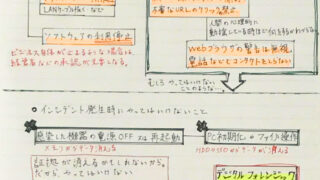 LANケーブル抜く など
ソフトウェアの利用停止
ビジネス自体が止まるような場合は
経営者などの承認が必要となる。
不審なURLのクリック禁止
人間の心理的に
動揺している時は
webブラウザの警告は無視
電話などもコンタクトをとらない
むしろ やってはいけない
ここのまとめ…
インシデント発生時にやってはいけないこと
感染した機器の電源OFF 又は 再起動
メモリのデータ消える
PC初期化 や ファイル操作
HDDやSSDのデータが消える
証拠が消えるかもしれないから。
だからやってはいけない
デジタルフォレンジック